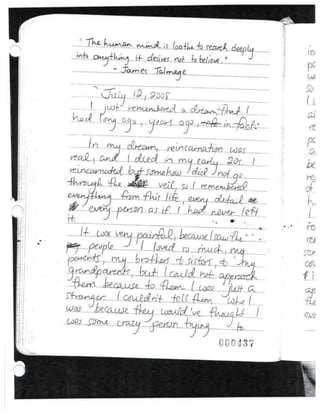 "The human mind is loathe to search deeply
into anything it desires not to believe."
- James Talmage
July 12, 2005
I just remembered a dream that I
had long ago, years ago, in fact:
In my dream, reincarnation was
real, and I died in my early 20s. I
reincarnated but somehow I did not go
through the veil, so I remembered
everything from this life, every detail
every person as if I had never left
it.
It was very painful, because I saw the
people I loved so much, my
parents, my brothers & sisters, & my
grandparents, but I could not approach
them because to them I was just a
stranger. I couldn't tell them who I
was because they would've thought I
was some crazy person trying to
000437